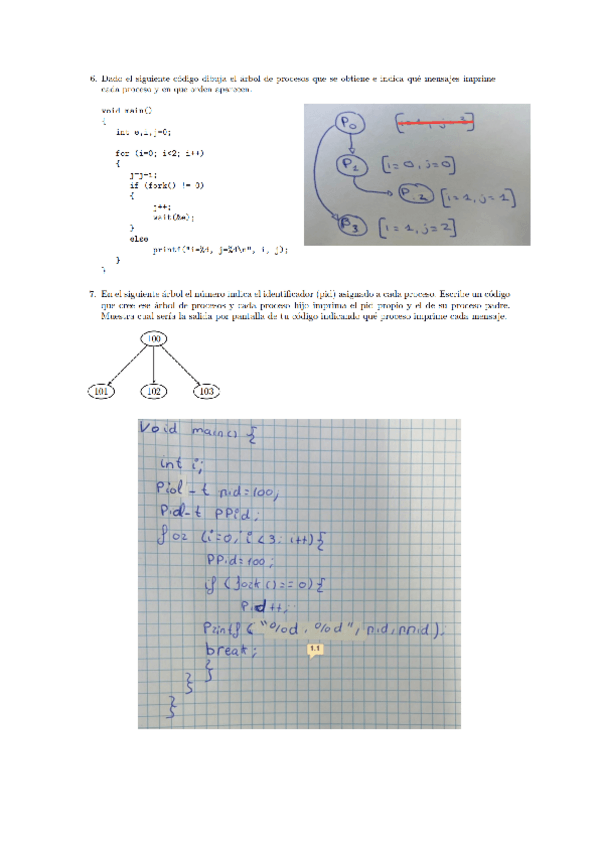 6. Dado el siguiente código dibuja el arbol de procesos que se obtiene e indica qué mensajes imprime
cada proceso y en que orden aparecen.
void main()
{
int e,i,j=0;
for (i=0; i<2; i++)
{
j=j+i;
if (fork() != 0)
{
j++;
wait(&e);
}
else
printf("i=%d, j=%d\n", i, j);
}
}
P0
P1 [i=0, j=0]
P.2 [i=1, j=1]
P3 [i=1, j=2]
7. En el siguiente árbol el número indica el identificador (pid) asignado a cada proceso. Escribe un código
que cree ese árbol de procesos y cada proceso hijo imprima el pid propio y el de su proceso padre.
Muestra cual sería la salida por pantalla de tu código indicando qué proceso imprime cada mensaje.
100
101 102 103
Void main() {
int i;
Pid_t pid=100;
Pid_t PPid;
for (i=0; i<3; i++){
PPid=100;
if (fork()==0){
Pid++;
Printf("%d, %d", pid, ppid);
break;
}
}
}
1.1